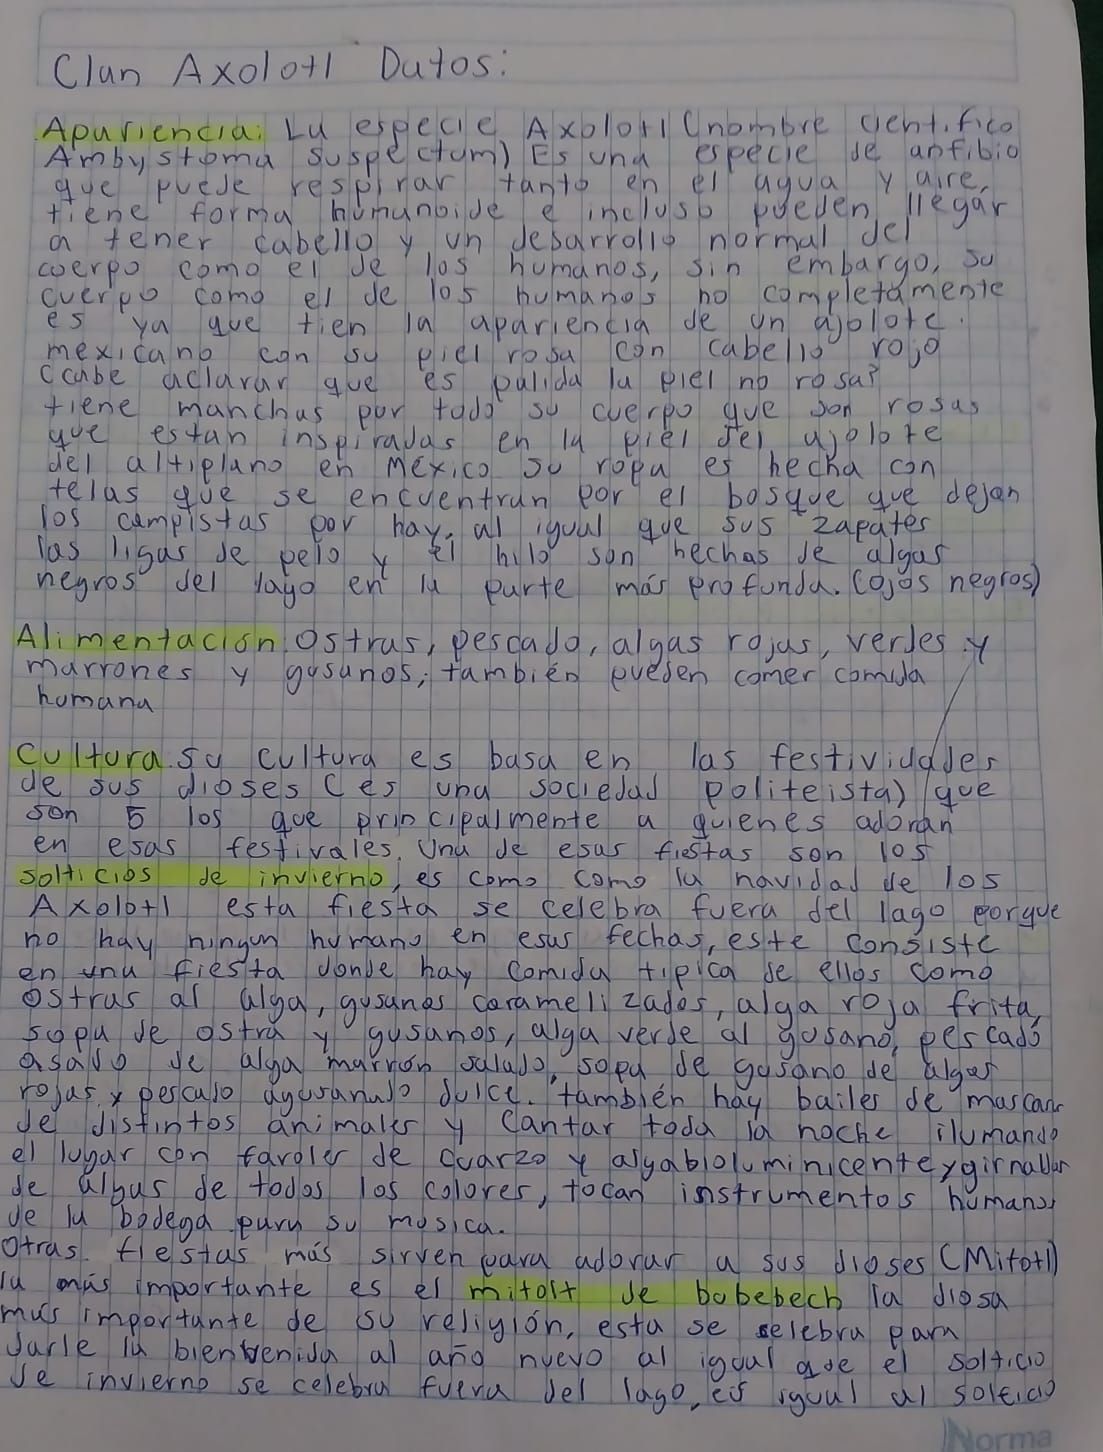 Clan Axolotl Datos:
Apariencia: La especie Axolotl (nombre cientifico
Ambystoma suspectum) Es una especie de anfibio
que puede respirar tanto en el agua y aire,
tiene forma humanoide e incluso pueden llegar
a tener cabello y un desarrollo normal del
cuerpo como el de los humanos, sin embargo, su
cuerpo como el de los humanos no completamente
es ya que tien la apariencia de un ajolote
mexicano con su piel rosa con cabello rojo
(cabe aclarar que es palida la piel no rosa)
tiene manchas por todo su cuerpo que son rosas
que estan inspiradas en la piel del ajolote
del altiplano en México su ropa es hecha con
telas que se encuentran por el bosque que dejan
los campistas por hay, al igual que sus zapates
las ligas de pelo y el hilo son hechas de algas
negros del lago en la parte más profunda. (ojos negros)
Alimentación Ostras, pescado, algas rojas, verdes y
marrones y gusanos, también pueden comer comida
humana
Cultura. Su cultura es basa en las festividades
de sus dioses (es una sociedad politeista) que
son 5 los que principalmente a quienes adoran
en esas festivales. Una de esas fiestas son los
solticios de invierno, es como como la navidad de los
Axolotl esta fiesta se celebra fuera del lago porque
no hay ningun humano en esas fechas, este consiste
en una fiesta donde hay comida tipica de ellos como
ostras al alga, gusanos caramelizados, alga roja frita,
sopa de ostra y gusanos, alga verde al gusano, pescado
asado de alga marrón salado, sopa de gusano de algas
rojas y pescado agusanado dulce. también hay bailes de mascaras
de distintos animales y cantar toda la noche ilumando
el lugar con faroles de cuarzo y alga bioluminicente y girnaldas
de algas de todos los colores, tocan instrumentos humanos
de la bodega para su musica.
Otras fiestas más sirven para adorar a sus dioses (Mitotl)
la más importante es el mitolt de bubebech la diosa
más importante de su religión, esta se selebra para
darle la bienvenida al año nuevo al igual que el solticio
de invierno se celebra fuera del lago, es igual al solticio
Norma